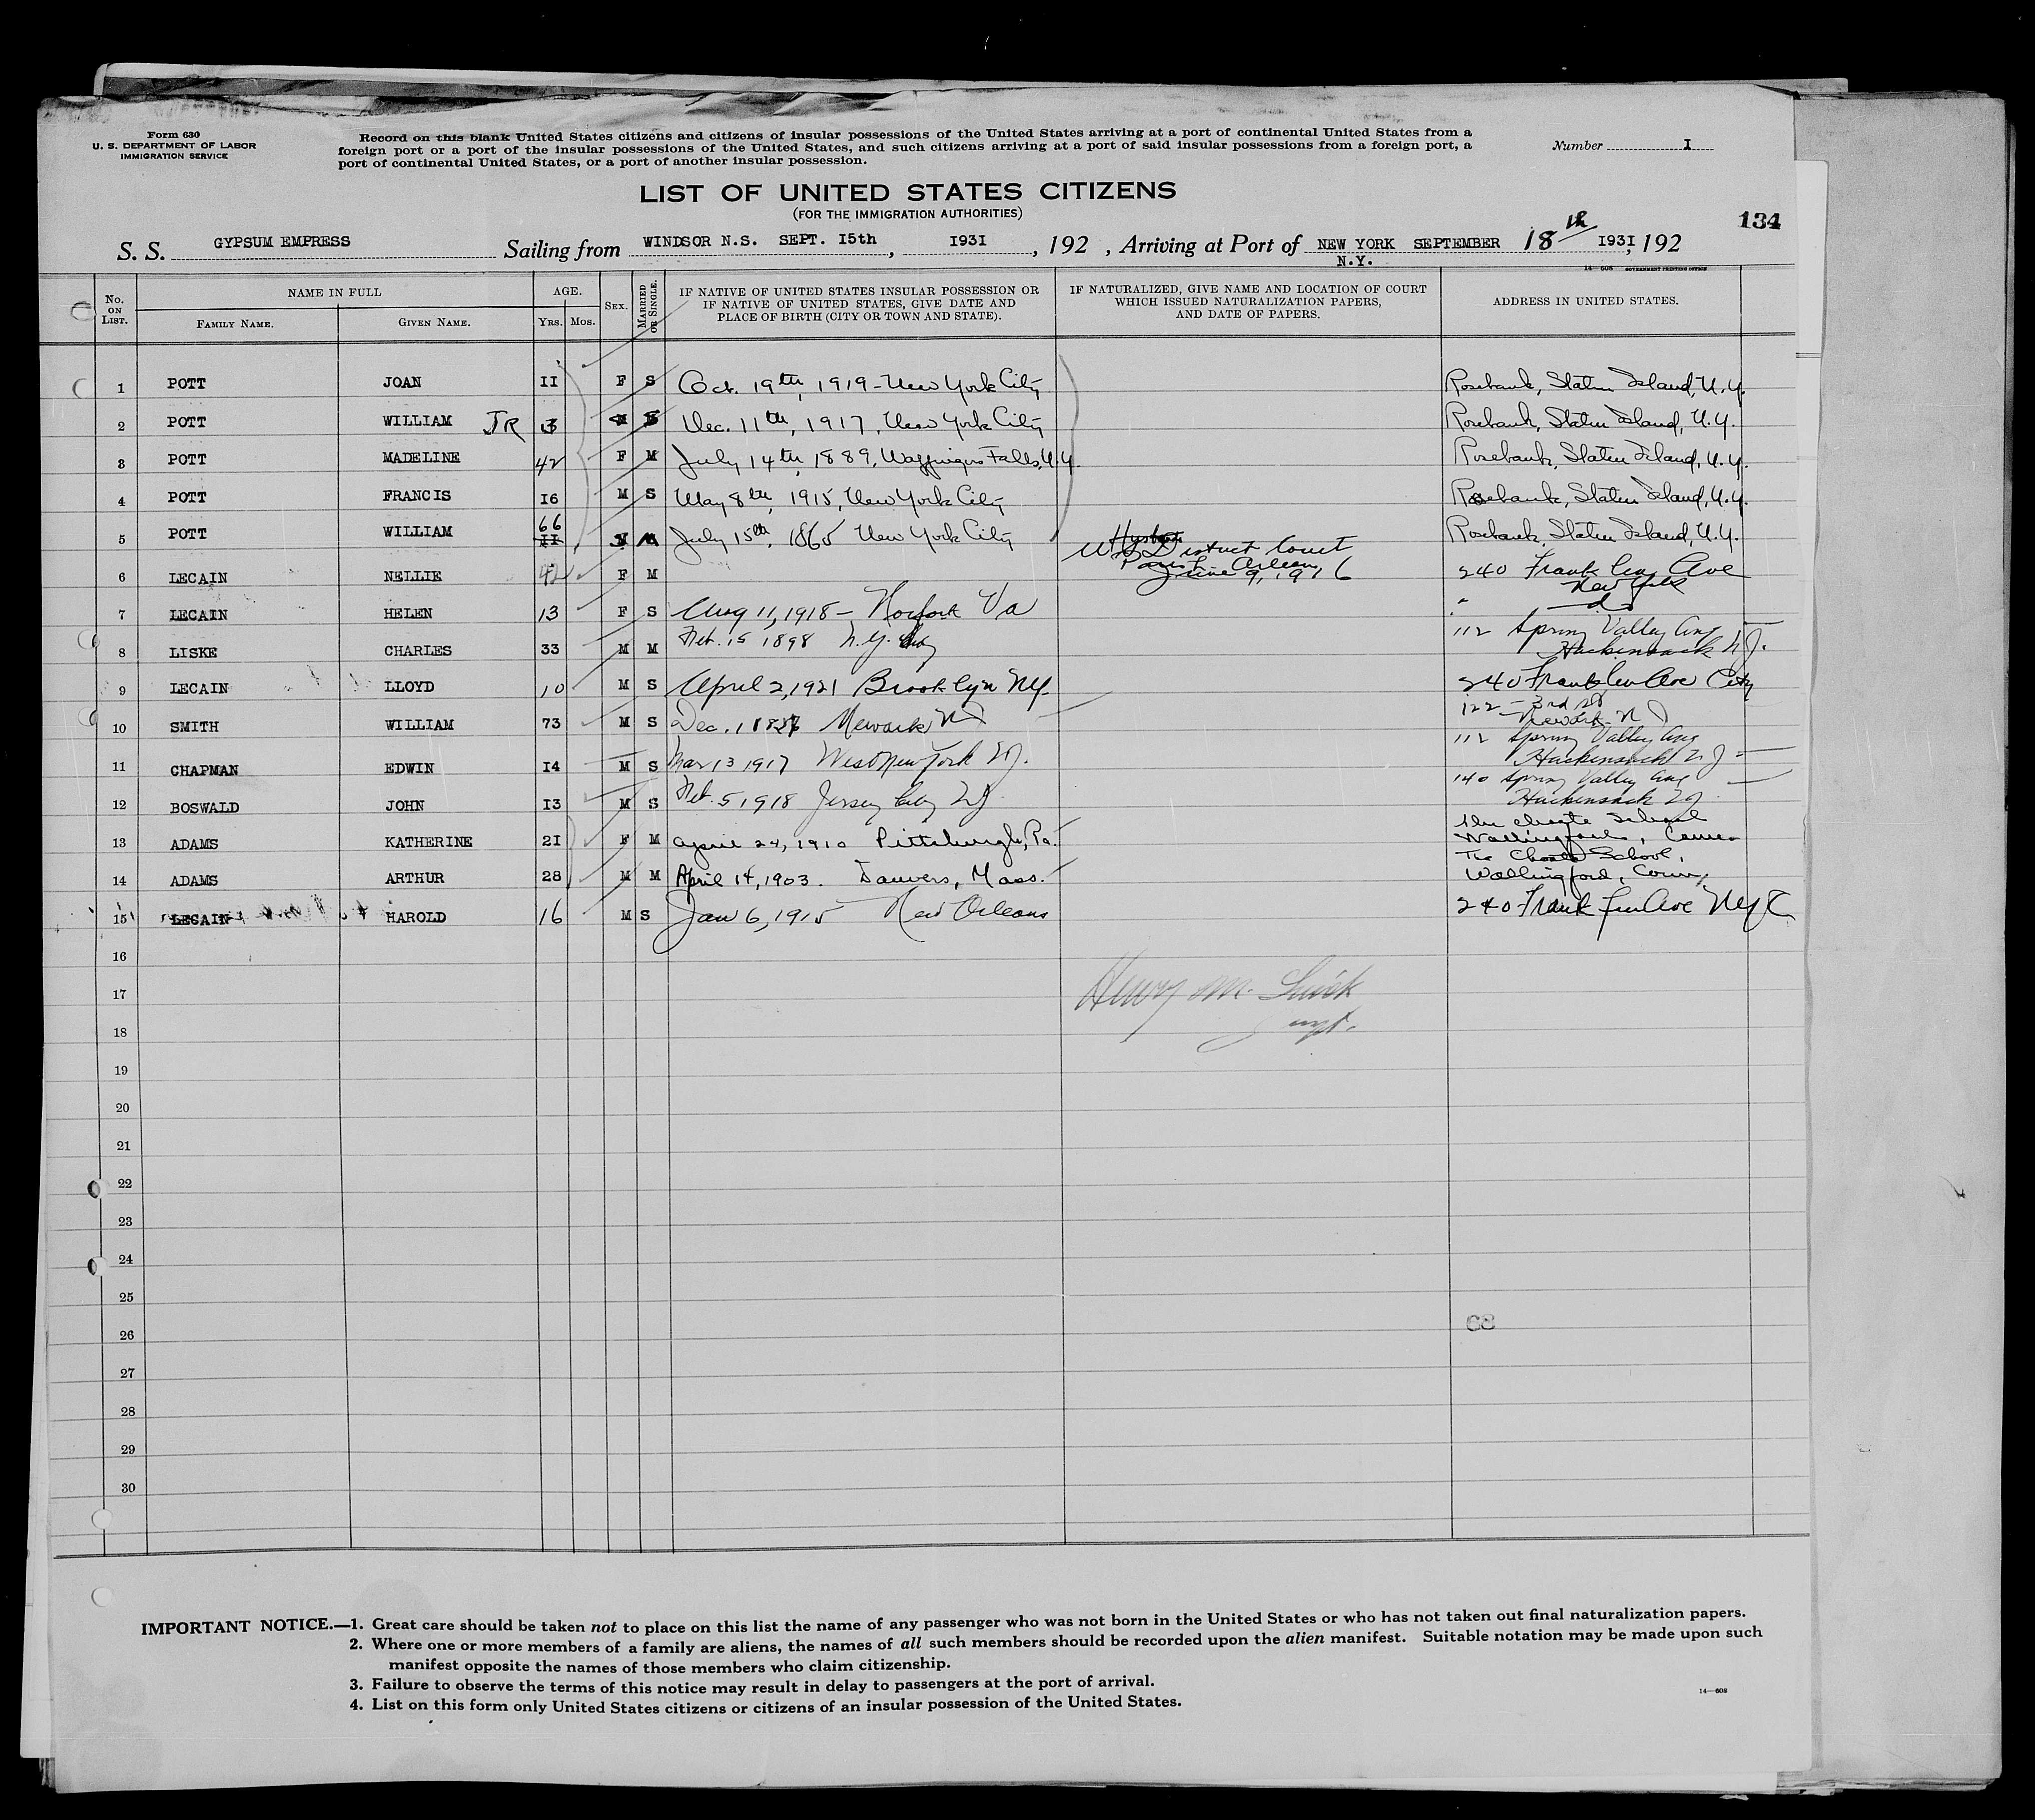 Form 630
U. S. DEPARTMENT OF LABOR
IMMIGRATION SERVICE
Record on this blank United States citizens and citizens of insular possessions of the United States arriving at a port of continental United States from a
foreign port or a port of the insular possessions of the United States, and such citizens arriving at a port of said insular possessions from a foreign port, a
port of continental United States, or a port of another insular possession.
Number I
LIST OF UNITED STATES CITIZENS
(FOR THE IMMIGRATION AUTHORITIES)
134
S. S. GYPSUM EMPRESS Sailing from WINDSOR N.S. SEPT. I5th, I93I, 192 , Arriving at Port of NEW YORK SEPTEMBER 18th I93I, 192
N.Y.
14—608 GOVERNMENT PRINTING OFFICE
No. ON LIST.
NAME IN FULL
FAMILY NAME.
GIVEN NAME.
AGE.
YRS. MOS.
SEX.
MARRIED OR SINGLE.
IF NATIVE OF UNITED STATES INSULAR POSSESSION OR
IF NATIVE OF UNITED STATES, GIVE DATE AND
PLACE OF BIRTH (CITY OR TOWN AND STATE).
IF NATURALIZED, GIVE NAME AND LOCATION OF COURT
WHICH ISSUED NATURALIZATION PAPERS,
AND DATE OF PAPERS.
ADDRESS IN UNITED STATES.
1 POTT JOAN II F S Oct. 19th, 1919 - New York City Rosebank, Staten Island, N.Y.
2 POTT WILLIAM JR 13 M S Dec. 11th, 1917, New York City Rosebank, Staten Island, N.Y.
3 POTT MADELINE 42 F M July 14th, 1889, Wappingers Falls, N.Y. Rosebank, Staten Island, N.Y.
4 POTT FRANCIS I6 M S May 8th, 1915, New York City Rosebank, Staten Island, N.Y.
5 POTT WILLIAM 66 II M M July 15th, 1865 New York City Rosebank, Staten Island, N.Y.
6 LECAIN NELLIE 42 F M US District Court
June 9, 1916
240 Franklin Ave
New York
7 LECAIN HELEN 13 F S Aug 11, 1918 - Norfork Va " do
8 LISKE CHARLES 33 M M Feb. 15 1898 N.Y. City 112 Spring Valley Ave
Hackensack N.J.
9 LECAIN LLOYD 10 M S April 2, 1921 Brooklyn NY. 240 Franklin Ave City
10 SMITH WILLIAM 73 M S Dec. 1 Newark NJ 122 - 3rd St
Newark N J
11 CHAPMAN EDWIN I4 M S Mar 13 1917 West New York N.J. 112 Spring Valley Ave
Hackensack N J
12 BOSWALD JOHN I3 M S Feb. 5 1918 Jersey City NJ 140 Spring Valley Ave
Hackensack NJ
13 ADAMS KATHERINE 2I F M April 24, 1910 Pittsburgh, Pa. The Choate School
Wallingford, Conn.
14 ADAMS ARTHUR 28 M M April 14, 1903. Danvers, Mass. The Choate School,
Wallingford, Conn.
15 LECAIN HAROLD 16 M S Jan 6, 1915 New Orleans 240 Franklin Ave NYC
16
17
Henry M.
18
19
20
21
22
23
24
25
26
68
27
28
29
30
IMPORTANT NOTICE.—1. Great care should be taken not to place on this list the name of any passenger who was not born in the United States or who has not taken out final naturalization papers.
2. Where one or more members of a family are aliens, the names of all such members should be recorded upon the alien manifest. Suitable notation may be made upon such
manifest opposite the names of those members who claim citizenship.
3. Failure to observe the terms of this notice may result in delay to passengers at the port of arrival.
4. List on this form only United States citizens or citizens of an insular possession of the United States.
14—608